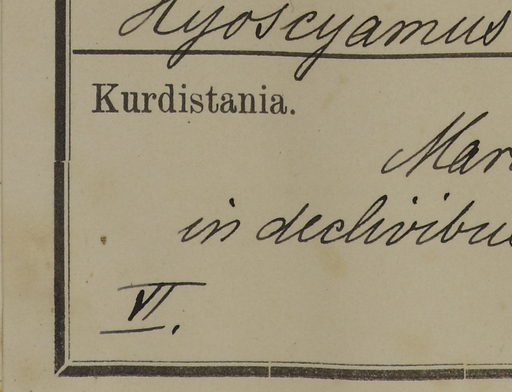 Hyoscyamus
Kurdistania.
Mar
in declivibu
VI.